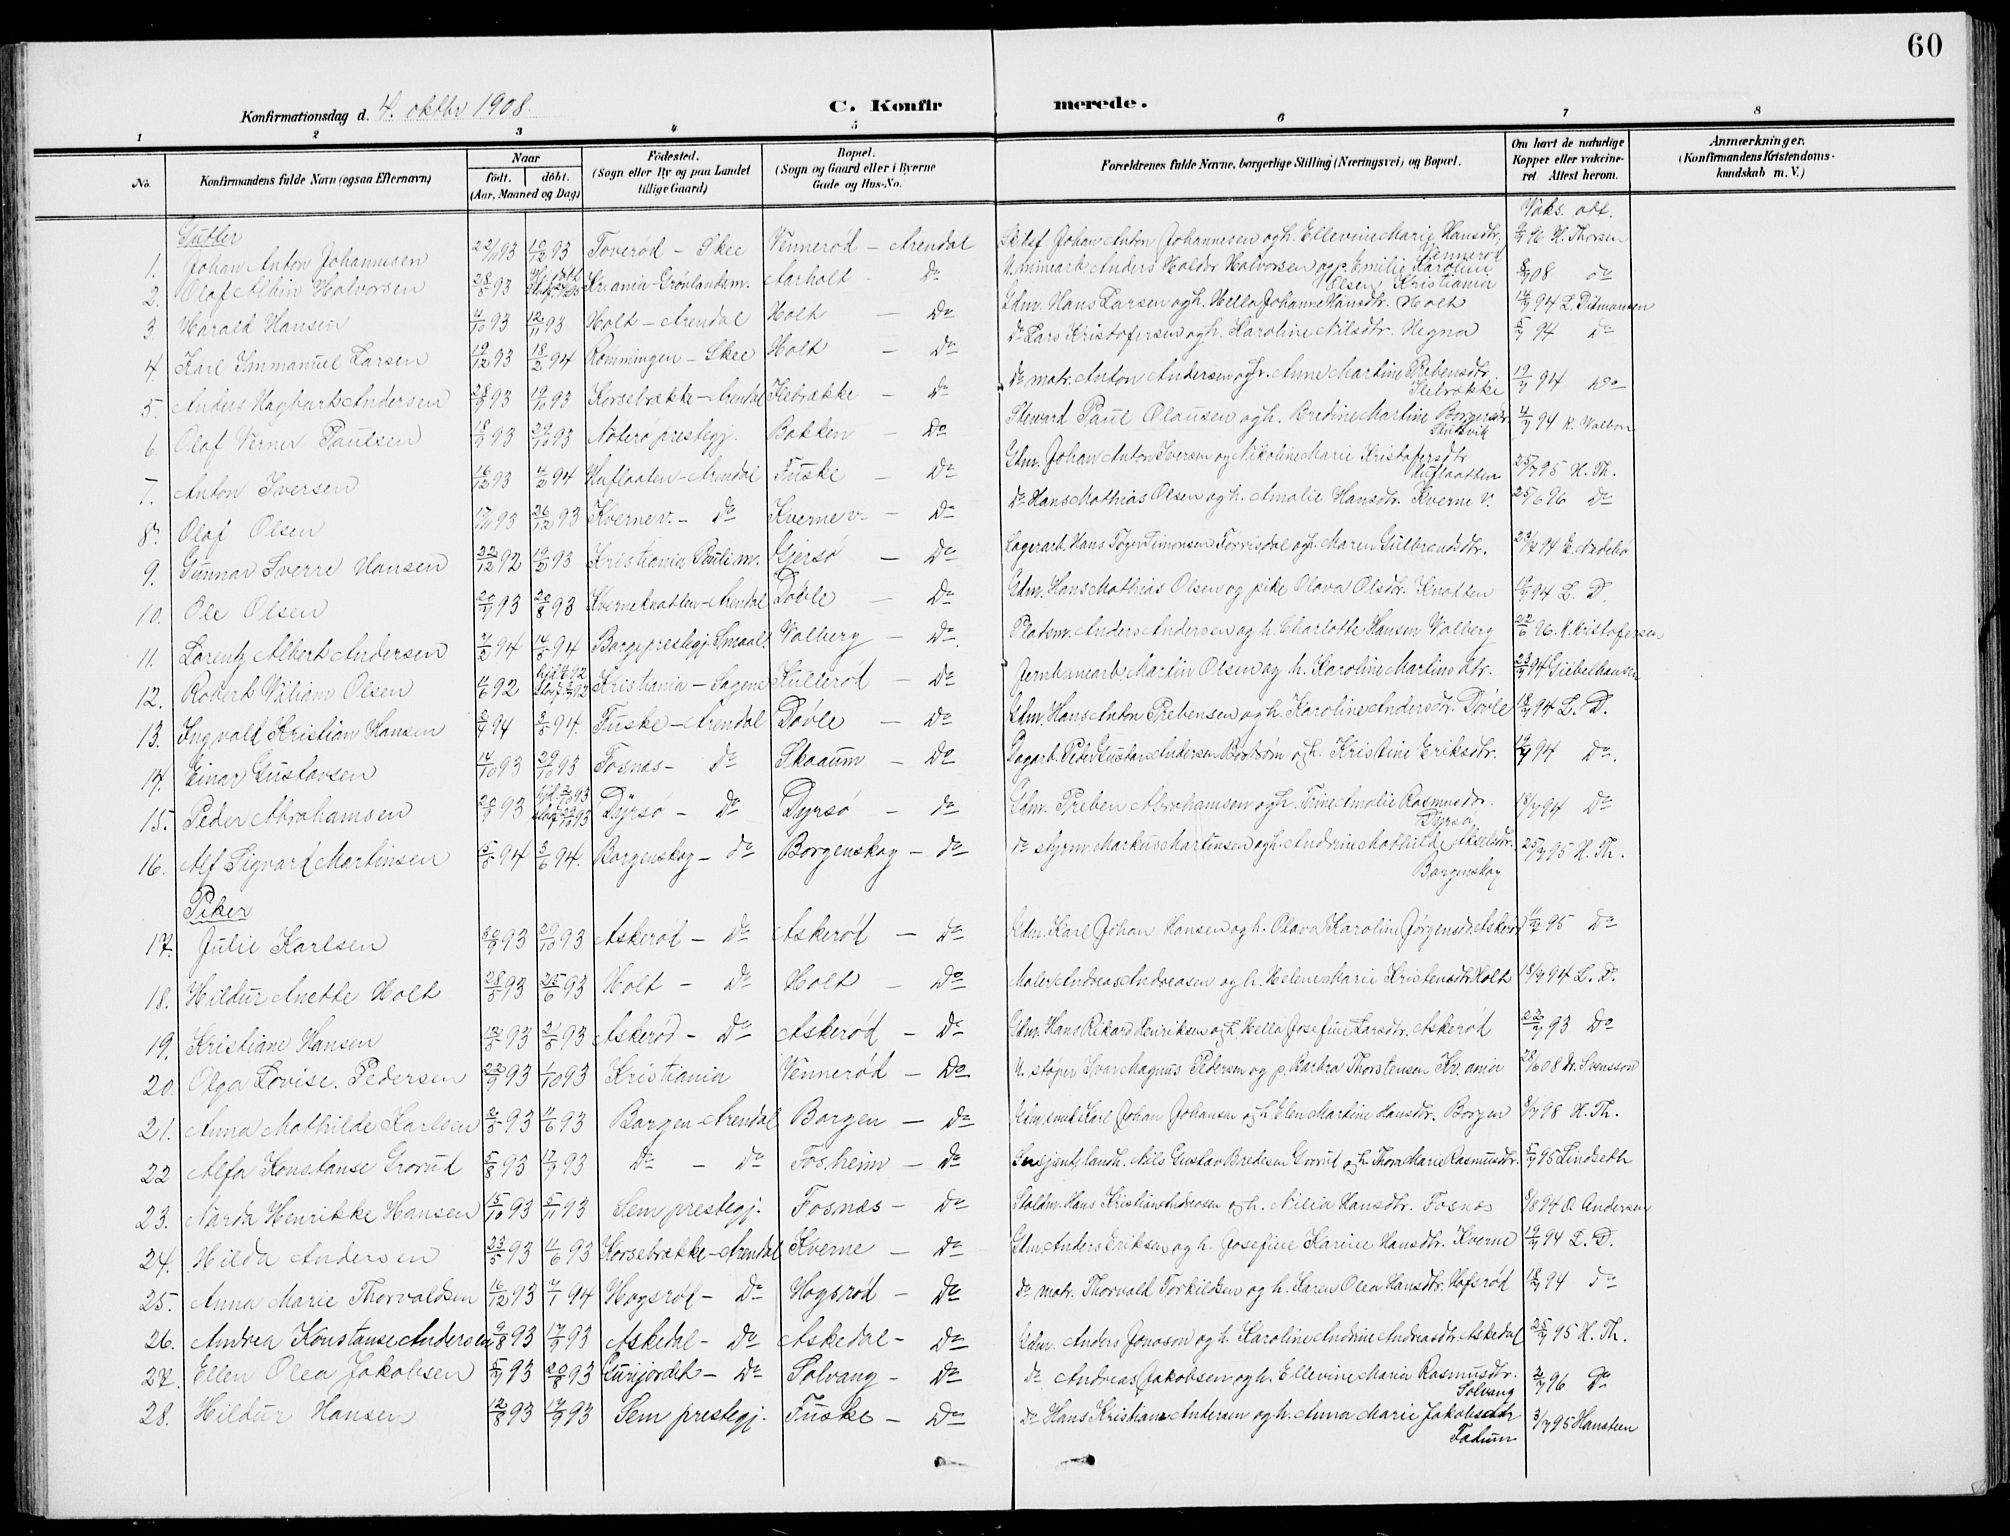 60
Konfirmationsdag d. 4. oktbr 1908.
C. Konfir merede.
1 2 3 4 5 6 7 8
No. Konfirmandens fulde Navn (ogsaa Efternavn) Naar født. døbt. (Aar, Maaned og Dag) Fødested. (Sogn eller By og paa Landet tillige Gaard) Bopæl. (Sogn og Gaard eller i Byerne Gade og Hus-No. Forældrenes fulde Navne, borgerlige Stilling (Næringsvei) og Bopæl. Om havt de naturlige Kopper eller vakcineret Attest herom. Anmærkninger. (Konfirmandens Kristendomskundskab m. V.)
Gutter Vaks. att.
1. Johan Anton Johannesen 22/11 93 10/12 93 Toverød - Skee Vennerød - Arendal Johan Anton Johannesen og h. Ellevine Marie Hansdtr. Vennerød 96 H. Thorsen
2. Olaf Albin Halvorsen 28/8 93 Kr.ania - Grønlandsm. Aarholt - Do Anders Holdv Halvorsen og p. Emilie Karoline Olsen Kristiania 08 do
3 Harald Hansen 4/10 93 12/11 93 Holt - Arendal Holt - Do Gdm. Hans Larsen og h. Hella Johanne Hansdtr. Holt 94 L. Ditmansen
4. Karl Immanuel Larsen 19/12 93 18/2 94 Romningen - Skee Holt - Do Do Lars Kristofersen og h. Karoline Nilsdtr. Hegna 94 Do
5. Anders Hagbart Andersen 28/9 93 19/10 93 Korsebrække - Arendal Ilebrække - Do Do matr. Anton Andersen og h. Anne Martine Prebensdtr. Ilebrække 19/7 94 Do
6. Olaf Verner Paulsen 18/9 93 29/10 93 Nøtero prestegj. Bakken - Do Steward Paul Olausen og h. Bredine Martine Borgersdtr. 4/7 94 K. Walbom
7. Anton Iversen 16/12 93 4/2 94 Huflaaten - Arendal Fuske - Do Gdm. Johan Anton Iversen og Nikoline Marie Kristofersdtr Huflaatten 25/7 95 H. Th.
8. Olaf Olsen 17/11 93 26/12 93 Kverne v. - Do Kverne v. - Do Do Hans Mathias Olsen og h. Amalie Hansdtr. Kverne v. 25/6 96 Do
9. Gunnar Sverre Hansen 22/12 92 19/2 93 Kristiania Pauli m. Gjersø - Do Lagerarb. Hans Timonsen Torrisdal og h. Maren Gulbrandsdtr. 94
10. Ole Olsen 20/7 93 20/8 93 Kverneknatten - Arendal Døvle - Do Gdm. Hans Mathias Olsen og pike Olava Olsdtr. Knatten 94 L. D.
11. Lorentz Albert Andersen 7/2 94 14/5 94 Borge prestegj. Smaal. Valberg - Do Pladsm. Anders Andersen og h. Charlotte Hansen Valberg 22/6 96. K. Kristofersen
12. Robert Viliam Olsen 4/6 92 Kristiania - Sagene Kullerød - Do Jernbanearb. Martin Olsen og h. Karoline Martinsdtr. 23/7 94 Giebelhausen
13. Ingvald Kristian Hansen 2/4 94 94. Fuske - Arendal Døvle - Do Gdm. Hans Anton Prebensen og h. Karoline Andersdtr. Døvle 18/7 94 L. D.
14. Einar Gustavsen 14/10 93 29/10 93 Fosnæs - Do Skaaum - Do Dagarb. Peder Gustav Andersen og h. Kristine Eriksdtr. 19/7 94 Do.
15. Peder Abrahamsen 20/9 93 Dyrsø - Do Dyrsø - do Gdm. Preben Abrahamsen og h. Trine Amalie Rasmusdtr. Dyrsø 18/7 94 Do
16. Alf Sigvard Martinsen 5/5 94 3/6 94. Borgenskog - do Borgenskog - do do styrm. Markus Martinsen og h. Andrine Mathilde Akselsdtr. Borgenskog 25/7 95 H. Th.
Piker
17. Julie Karlsen 30/9 93 29/10 93 Askerød - Do Askerød - Do Gdm. Karl Johan Hansen og h. Olava Karoline Jørgensdtr. Askerød 95 Do
18. Hildur Anette Holt 28/5 93 25/6 93 Holt - Do Holt - Do Maler Andreas Andreasen og h. Helene Marie Kristensdtr. Holt 18/7 94 L. D.
19. Kristiane Hansen 93 93 Askerød - Do Askerød - Do Gdm. Hans Rikard Henriksen og h. Hella Josefine Larsdtr. Askerød 22/7 93 Do
20. Olga Lovise Pedersen 22/9 93 1/10 93 Kristiania Vennerød - Do støper Ivar Magnus Pedersen og p. Barbra Thorstensen Kr.ania 28/6 08 Dr. Svensson
21. Anna Mathilde Karlsen 93 4/6 93 Borgen - Arendal Borgen - Do Gdm. smed Karl Johan Johansen og h. Elen Martine Hansdtr. Borgen 98 H. Th.
22 Alfa Konstanse Grorud 5/8 93 17/9 93 Do - Do Fosheim - Do landh. Nils Gustav Bredesen Grorud og h. Thora Marie Rasmusdtr. 5/7 95 Lindseth
23. Narda Henrikke Hansen 15/10 93 5/11 93 Sem prestegj. Fosnæs - Do Hans Kristian Andersen og h. Nilia Hansdtr. Fosnæs 94 O. Andersen
24. Hilda Andersen 23/5 93 4/6 93 Korsebrække - Arendal Kverne - Do Gdm Anders Eriksen og h. Josefine Karine Hansdtr. Kverne 19/7 94 L. D.
25. Anna Marie Thorvaldsen 16/12 93 7/1 94 Hogsrød - Do Hogsrød - Do Do matr. Thorvald Torkildsen og h. Karen Olea Hansdtr. Hofsrød 18/7 94 do
26. Andrea Konstanse Andersen 9/8 93 17/9 93 Askedal - Do Askedal - Do Gdm. Anders Jonason og h. Karoline Andrine Andreasdtr. Askedal 25/7 95 H. Th.
27. Ellen Olea Jakobsen 5/7 93 20/8 93 Gurijordet - Do Solvang - Do Do Andreas Jakobsen og h. Ellevine Maria Rasmusdtr. Solvang 2/7 96 Do
28. Hildur Hansen 12/8 93 17/9 93 Sem prestegj. Fuske - Do Do Hans Kristian Andersen og h. Anna Marie Jakobsdtr Fadum 3/7 95 Hansteen